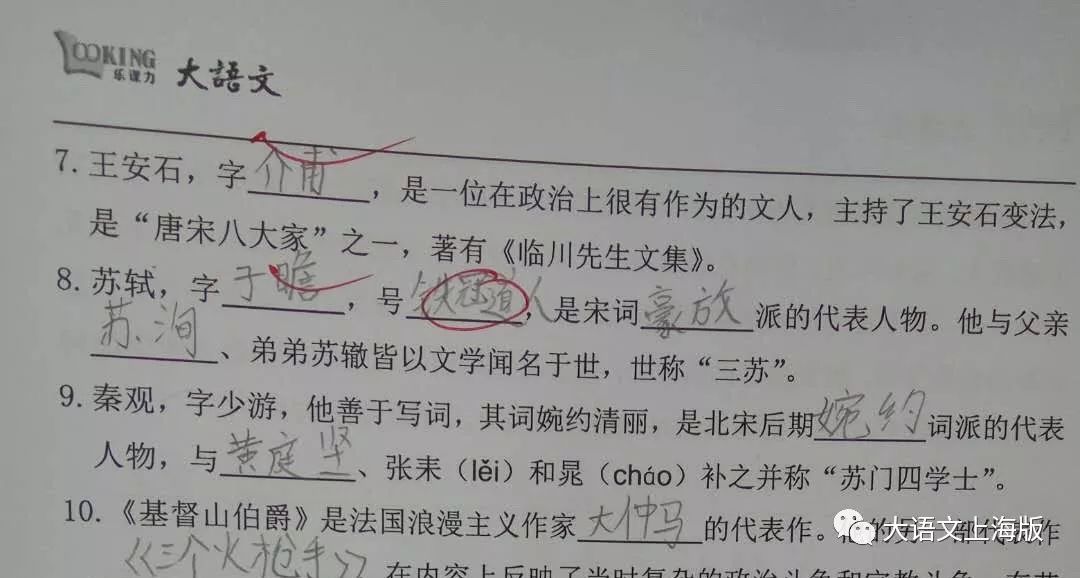 LOOKING
乐课力 大語文
7. 王安石，字介甫，是一位在政治上很有作为的文人，主持了王安石变法，
是“唐宋八大家”之一，著有《临川先生文集》。
8. 苏轼，字子瞻，号铁冠道人，是宋词豪放派的代表人物。他与父亲
苏洵、弟弟苏辙皆以文学闻名于世，世称“三苏”。
9. 秦观，字少游，他善于写词，其词婉约清丽，是北宋后期婉约词派的代表
人物，与黄庭坚、张耒（lěi）和晁（cháo）补之并称“苏门四学士”。
10.《基督山伯爵》是法国浪漫主义作家大仲马的代表作。他的另一部代表作
《三个火枪手》在内容上反映了当时复杂的政治斗争和宗教斗争，在艺
大语文上海版